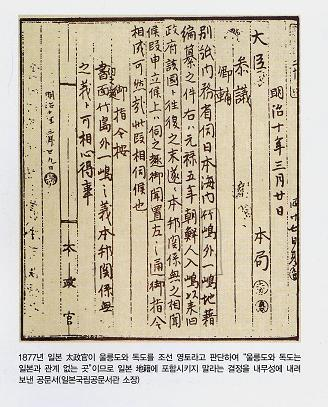 明治十年三月廿日
大臣 本局
参議
卿輔
別紙内務省伺日本海内竹嶋外一嶋地籍
編纂之件右ハ元禄五年朝鮮人入嶋以来旧
政府該国ト往復之末遂ニ本邦関係無之相聞
候段申立候上ハ伺之趣御聞置左之通御指令
相成可然哉此段相伺候也
御指令按
書面竹島外一嶋之義本邦関係無
之義ト可相心得事
明治十年三月廿九日
太政官
1877년 일본 太政官이 울릉도와 독도를 조선 영토라고 판단하여 “울릉도와 독도는
일본과 관계 없는 곳”이므로 일본 地籍에 포함시키지 말라는 결정을 내무성에 내려
보낸 공문서(일본국립공문서관 소장)